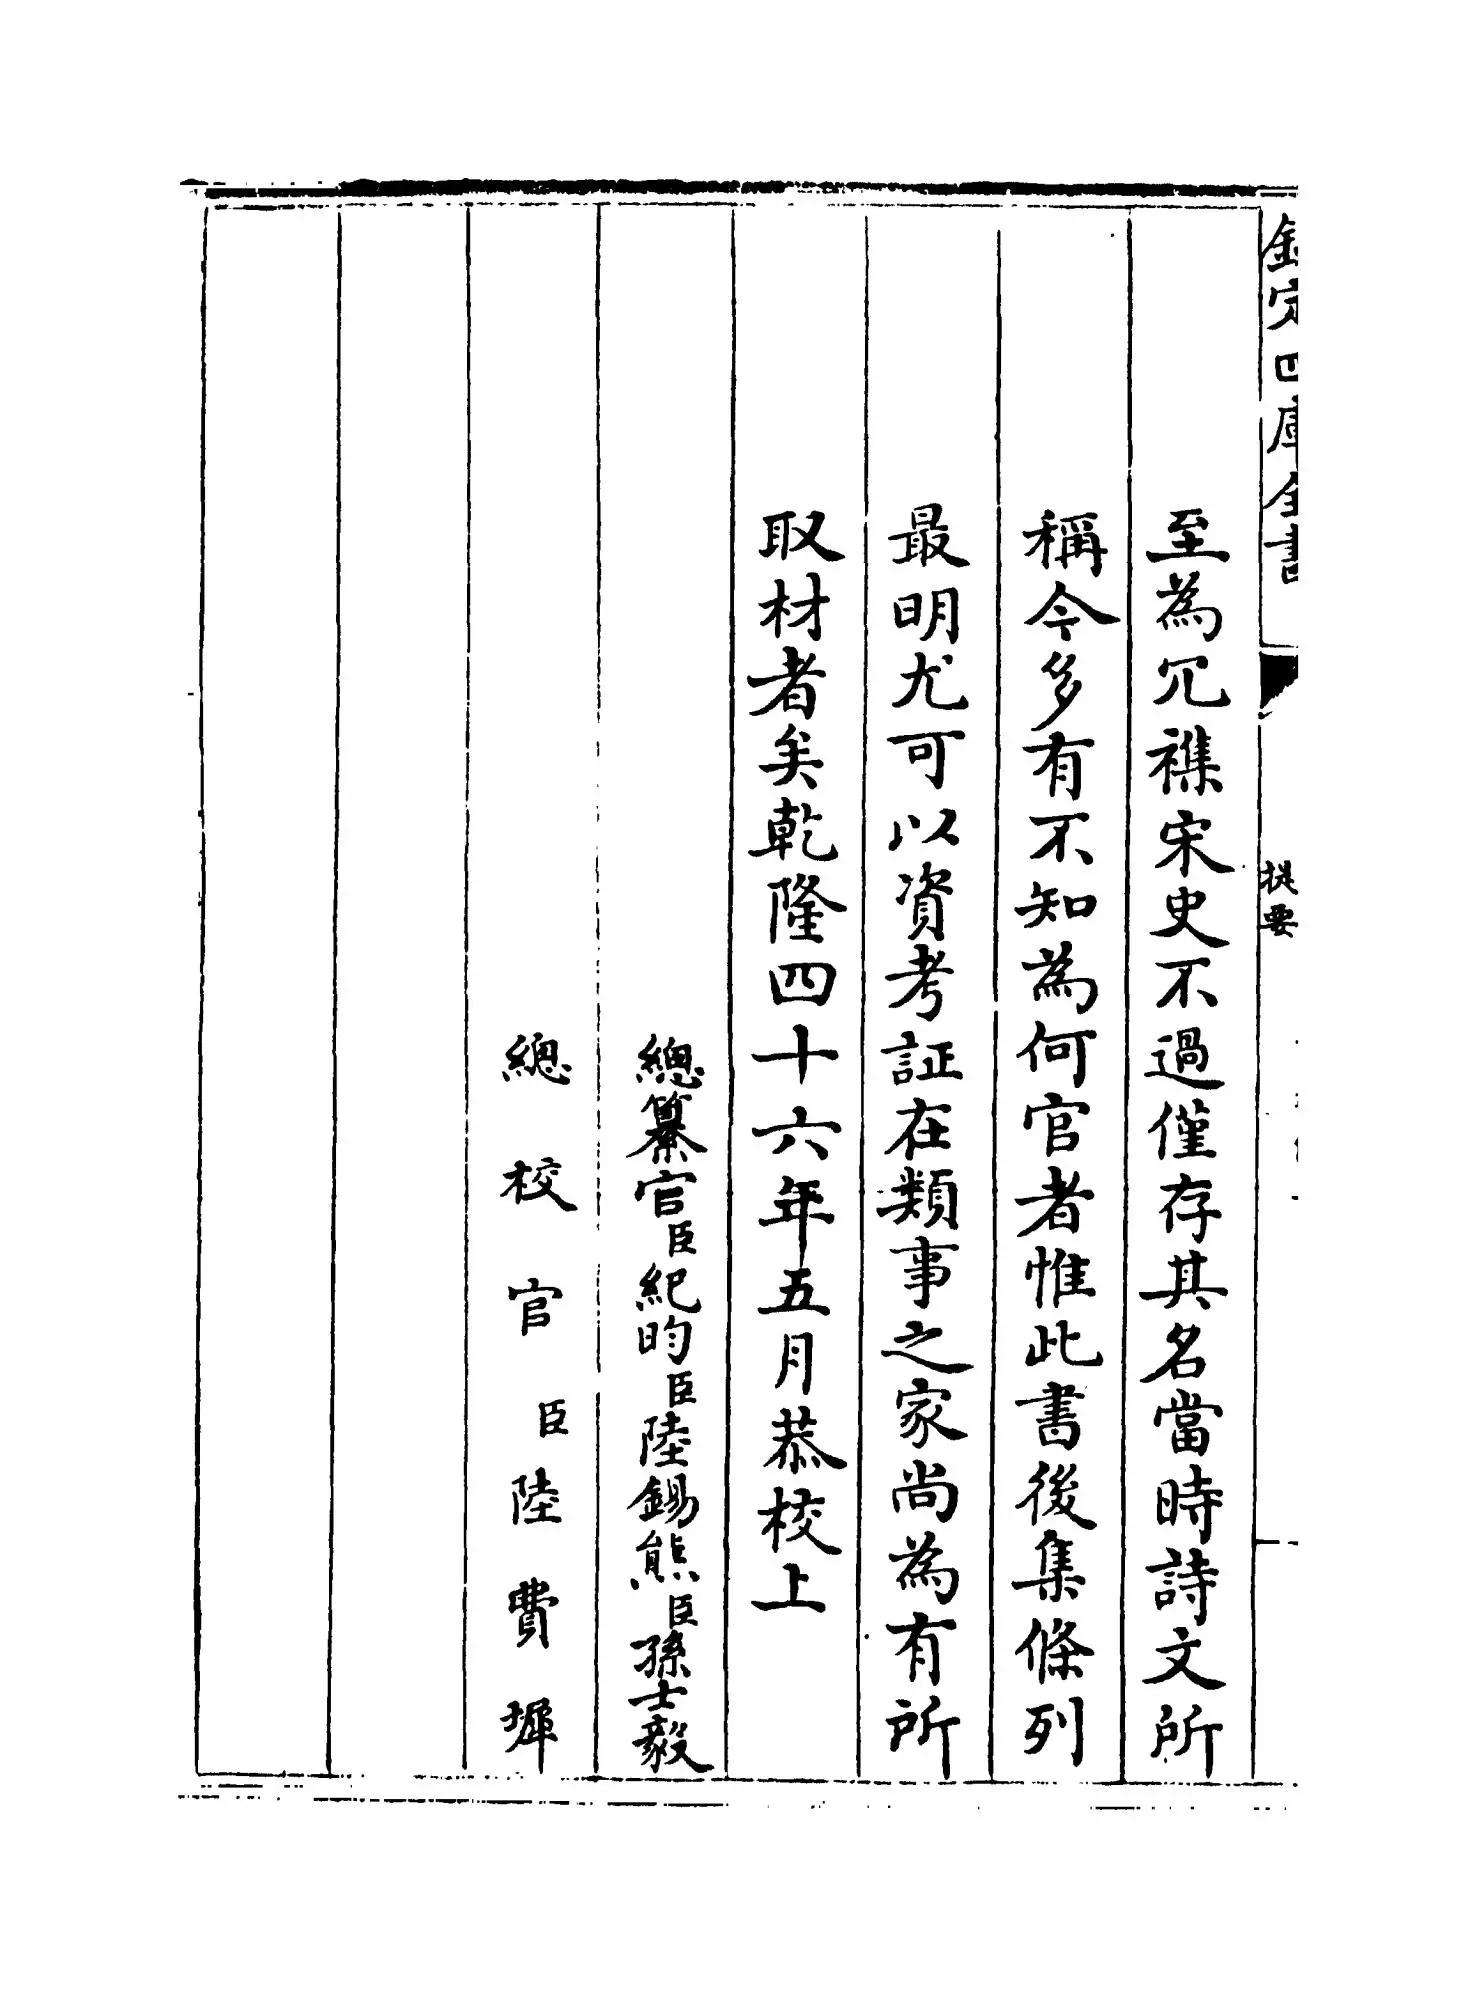 欽定四庫全書
提要
至為冗襍宋史不過僅存其名當時詩文所
稱今多有不知為何官者惟此書後集條列
最明尤可以資考証在類事之家尚為有所
取材者矣乾隆四十六年五月恭校上
總纂官臣紀昀臣陸錫熊臣孫士毅
總校官臣陸費墀